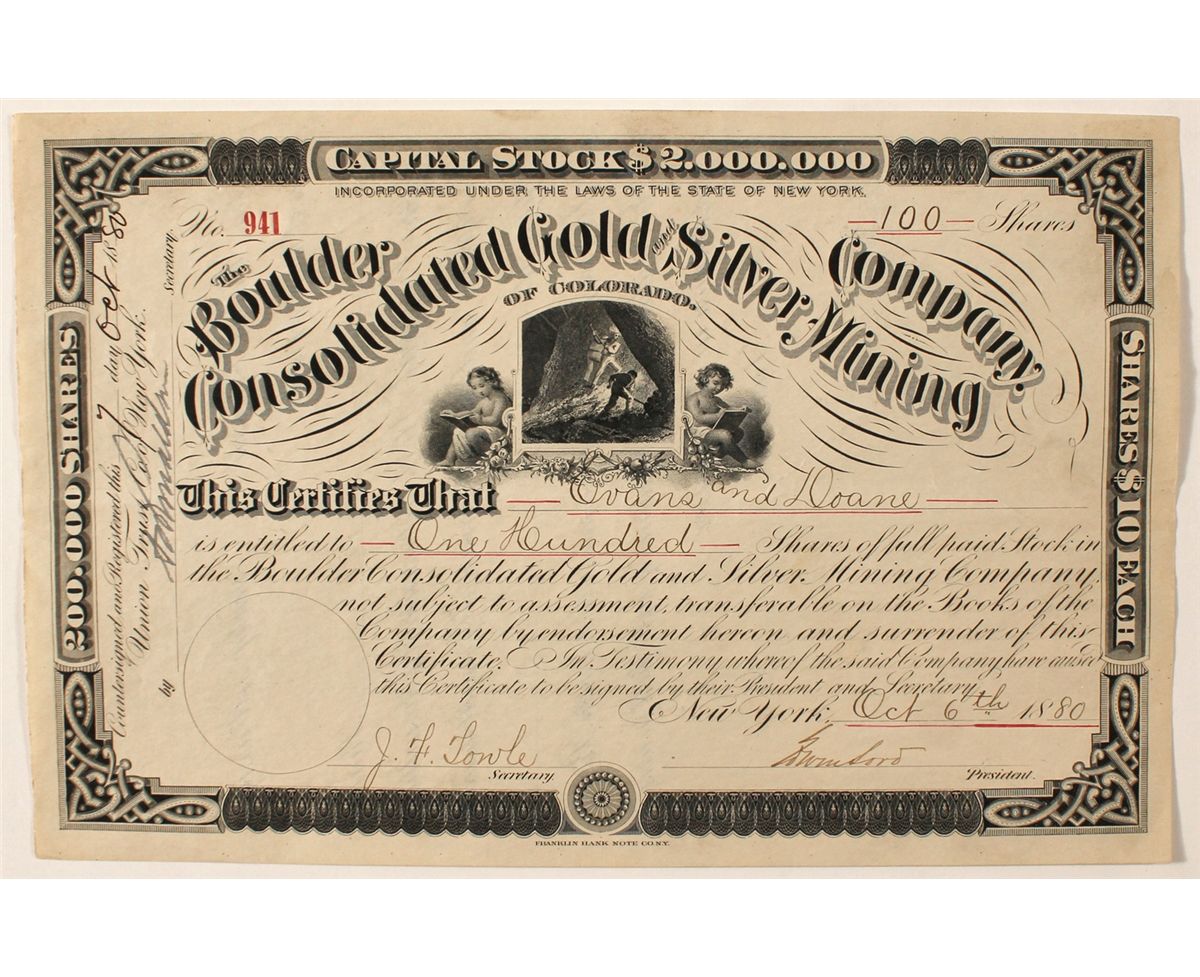 CAPITAL STOCK $2.000.000
INCORPORATED UNDER THE LAWS OF THE STATE OF NEW YORK.
No. 941
—100— Shares
The Boulder
Consolidated Gold and Silver Mining
Company.
OF COLORADO.
200.000 SHARES
SHARES $10 EACH
Countersigned and Registered this 7 day Oct 1880
Union Trust Co of New York.
by
Secretary.
This Certifies That — Evans and Doane —
is entitled to — One Hundred — Shares of full paid Stock in
the Boulder Consolidated Gold and Silver Mining Company,
not subject to assessment, transferable on the Books of the
Company by endorsement hereon and surrender of this
Certificate. In Testimony whereof the said Company have caused
this Certificate to be signed by their President and Secretary
New York, Oct 6th 1880
J. F. Towle
Secretary
President.
FRANKLIN BANK NOTE CO. N.Y.